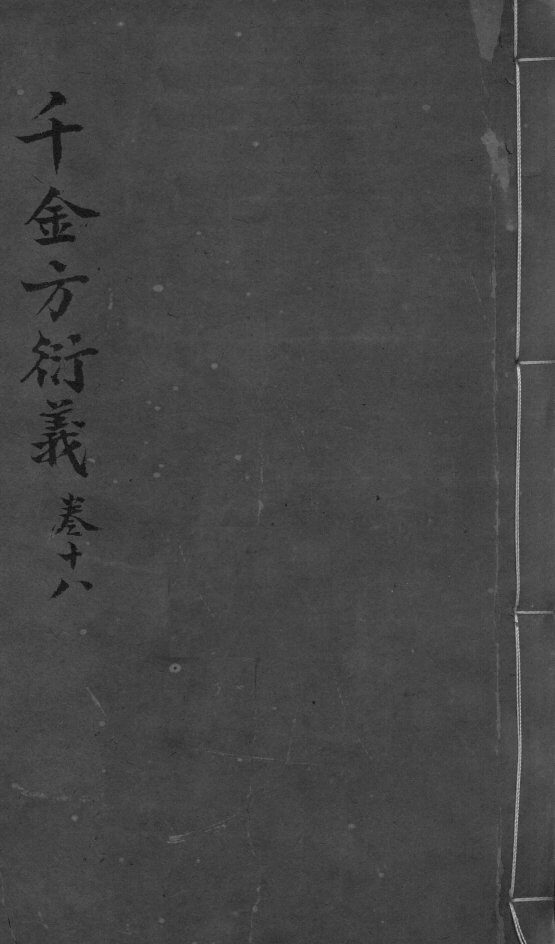 千金方衍義 卷十八